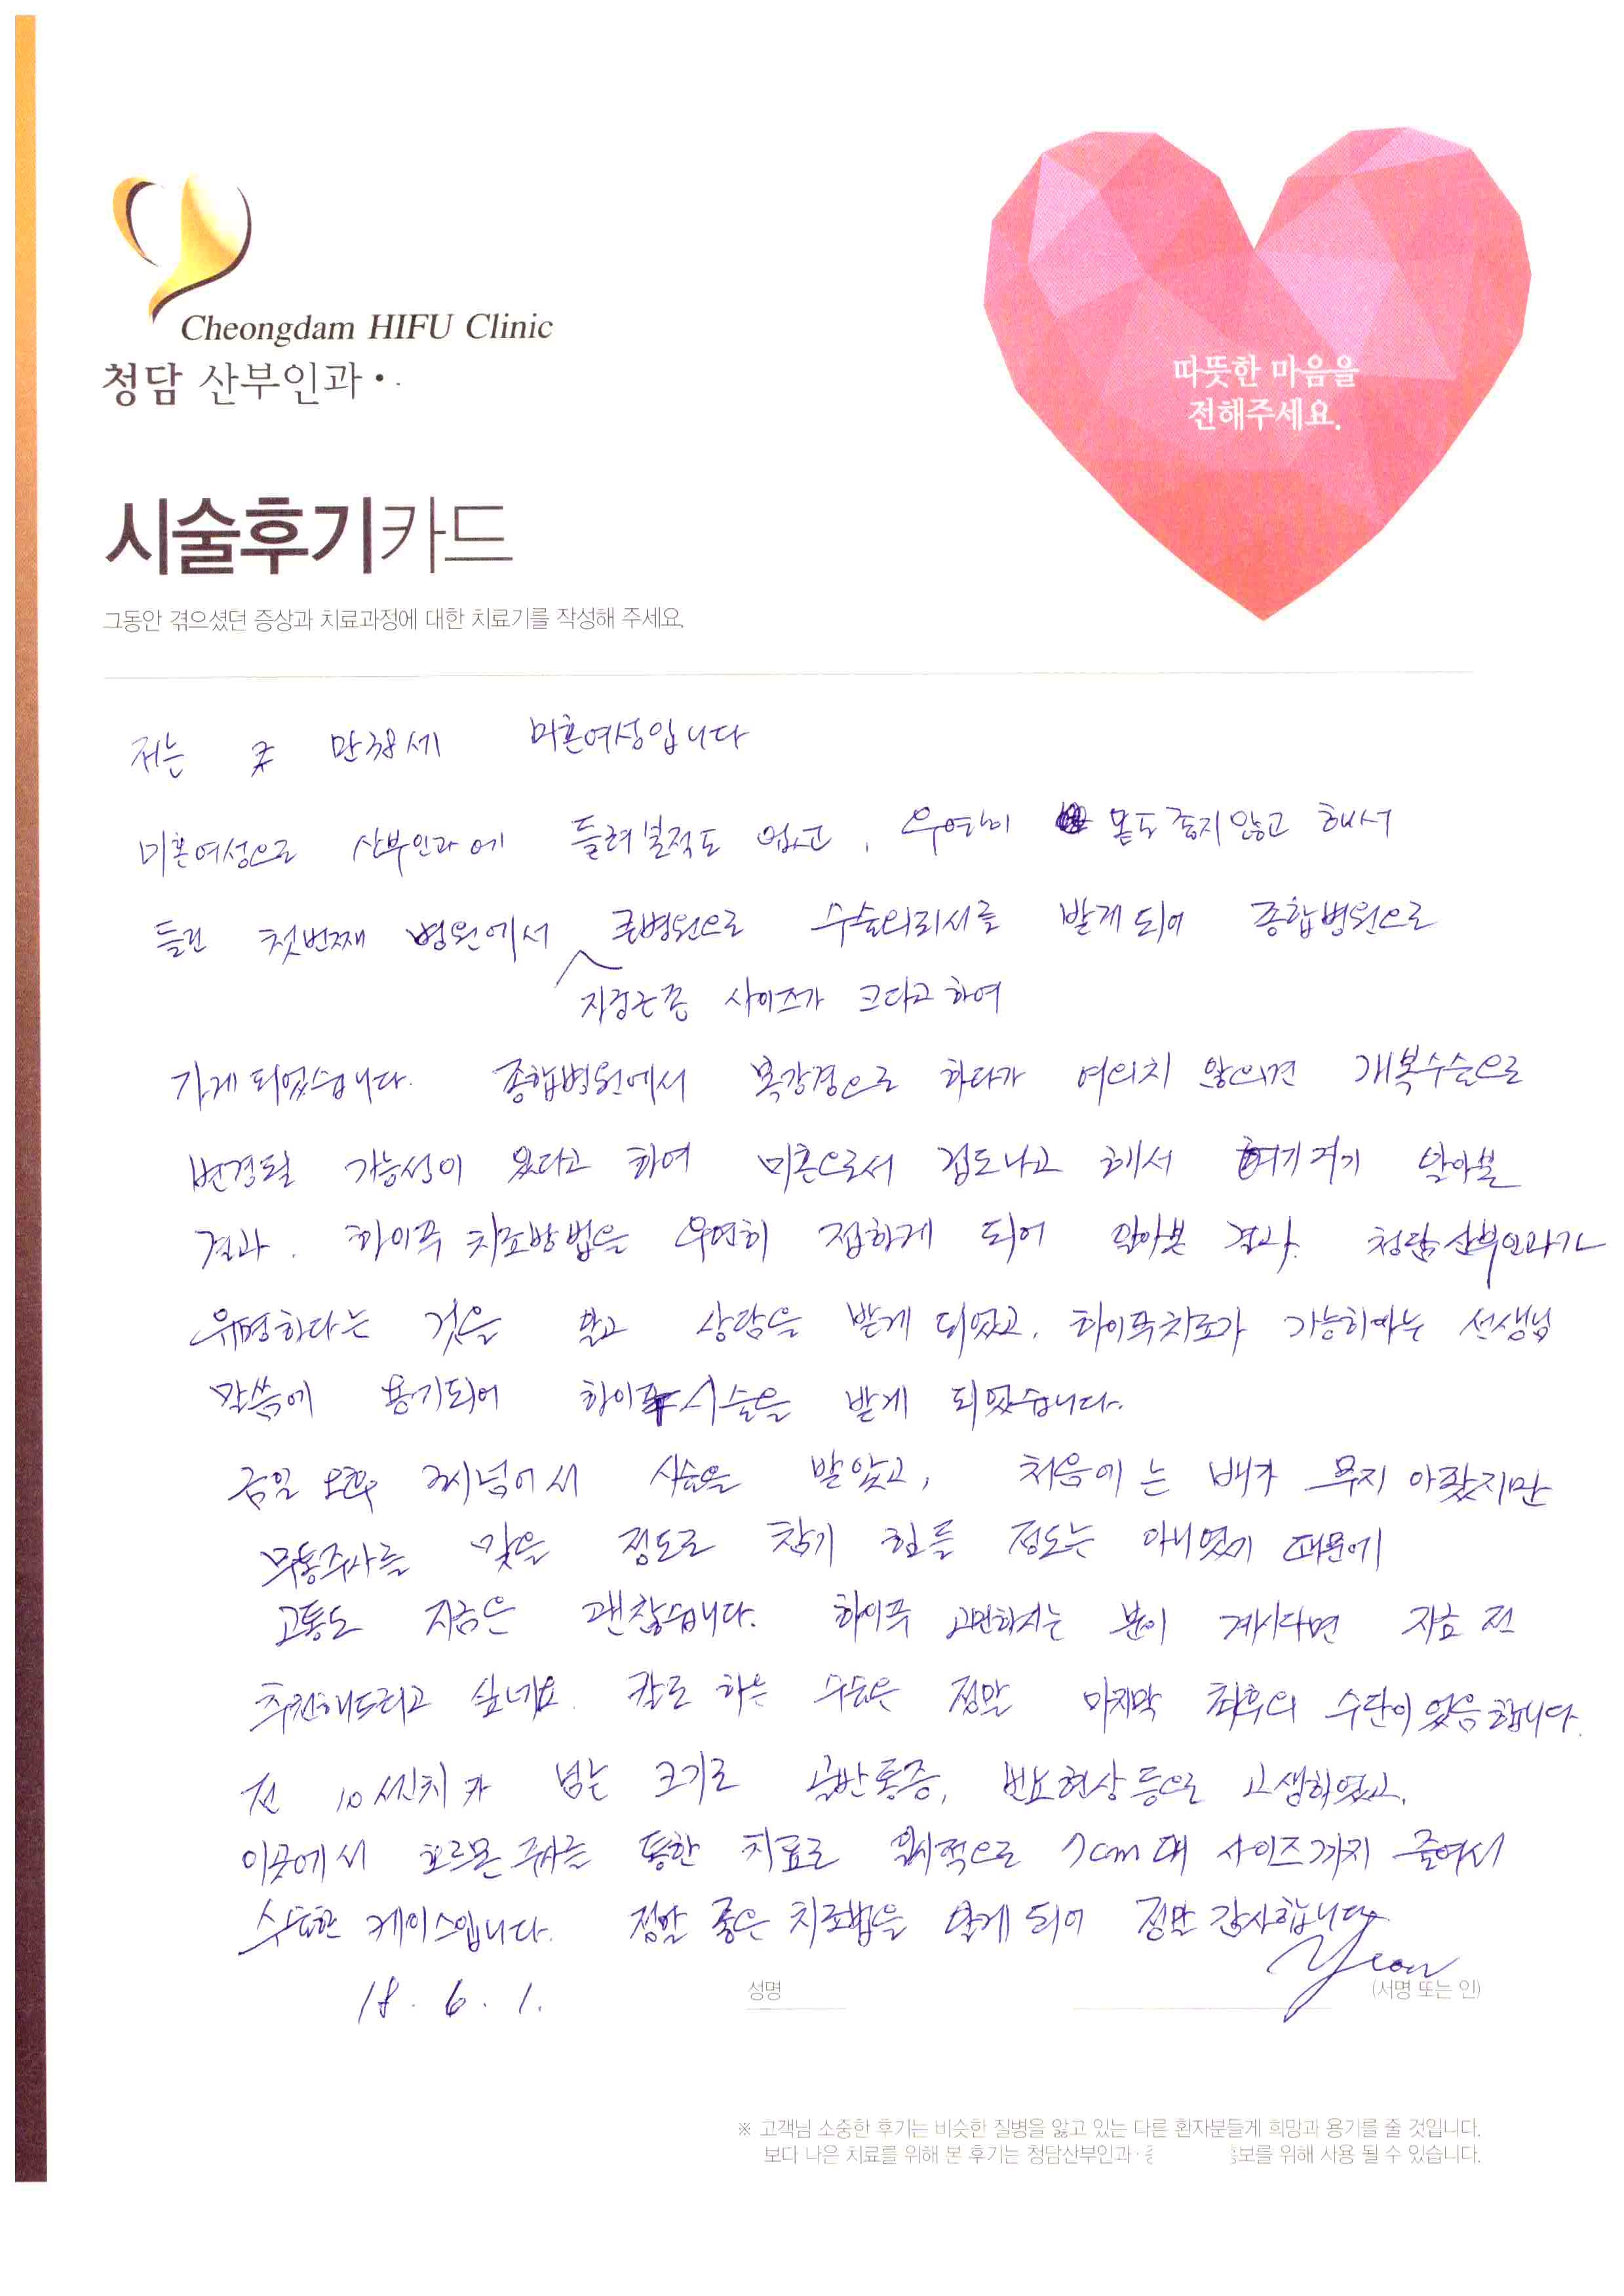 Cheongdam HIFU Clinic
청담 산부인과
따뜻한 마음을
전해주세요.
시술후기카드
그동안 겪으셨던 증상과 치료과정에 대한 치료기를 작성해 주세요.
저는 만38세 미혼여성입니다
미혼여성으로 산부인과에 들려본적도 없고, 우연히 몸도 좋지않고 해서
들린 첫번째 병원에서 큰병원으로 수술의뢰서를 받게되어 종합병원으로
자궁근종 사이즈가 크다고 하여
가게 되었습니다. 종합병원에서 복강경으로 하다가 여의치 않으면 개복수술로
변경될 가능성이 있다고 하여 미혼으로서 겁도나고 해서 여기저기 알아본
결과. 하이푸 치료방법을 우연히 접하게 되어 알아본 결과. 청담산부인과가
유명하다는 것을 알고 상담을 받게 되었고, 하이푸치료가 가능하다는 선생님
말씀에 용기되어 하이푸시술을 받게 되었습니다.
금일 오후 2시넘어서 시술을 받았고, 처음에는 배가 무지 아팠지만
무통주사를 맞을 정도로 참기 힘들 정도는 아니였기 때문에
고통도 지금은 괜찮습니다. 하이푸 고민하시는 분이 계시다면 지금 전
추천해드리고 싶네요. 칼로 하는 수술은 정말 마지막 최후의 수단이었음 합니다.
전 10쎈치가 넘는 크기로 골반통증, 빈뇨현상등으로 고생하였고,
이곳에서 호르몬주사를 통한 치료로 일시적으로 7cm대 사이즈까지 줄여서
수술한 케이스입니다. 정말 좋은 치료법을 알게 되어 정말 감사합니다
Yeon
18. 6. 1. 성명 (서명 또는 인)
※ 고객님 소중한 후기는 비슷한 질병을 앓고 있는 다른 환자분들게 희망과 용기를 줄 것입니다.
보다 나은 치료를 위해 본 후기는 청담산부인과· 보를 위해 사용 될 수 있습니다.